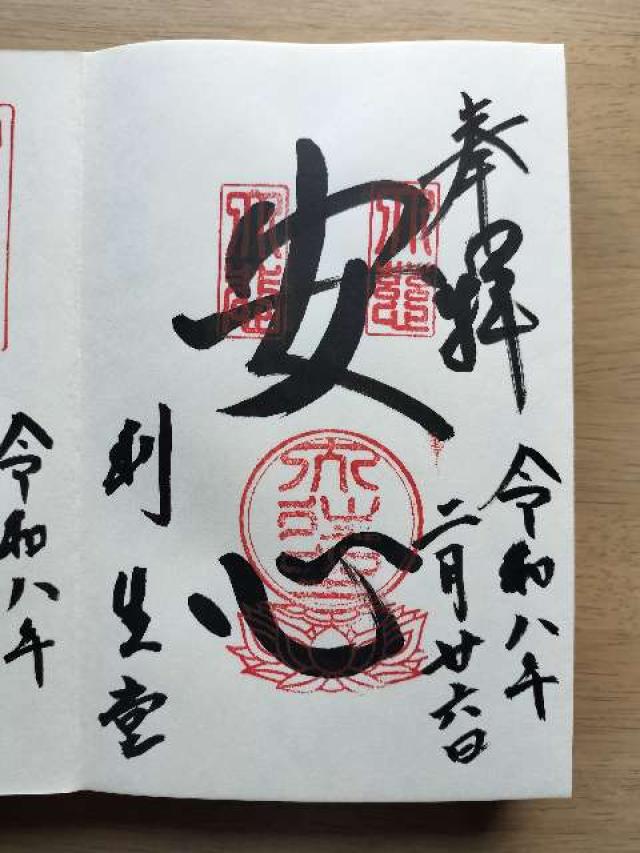 奉拝
令和八年
二月廿六日
安心
利生堂
令和八年